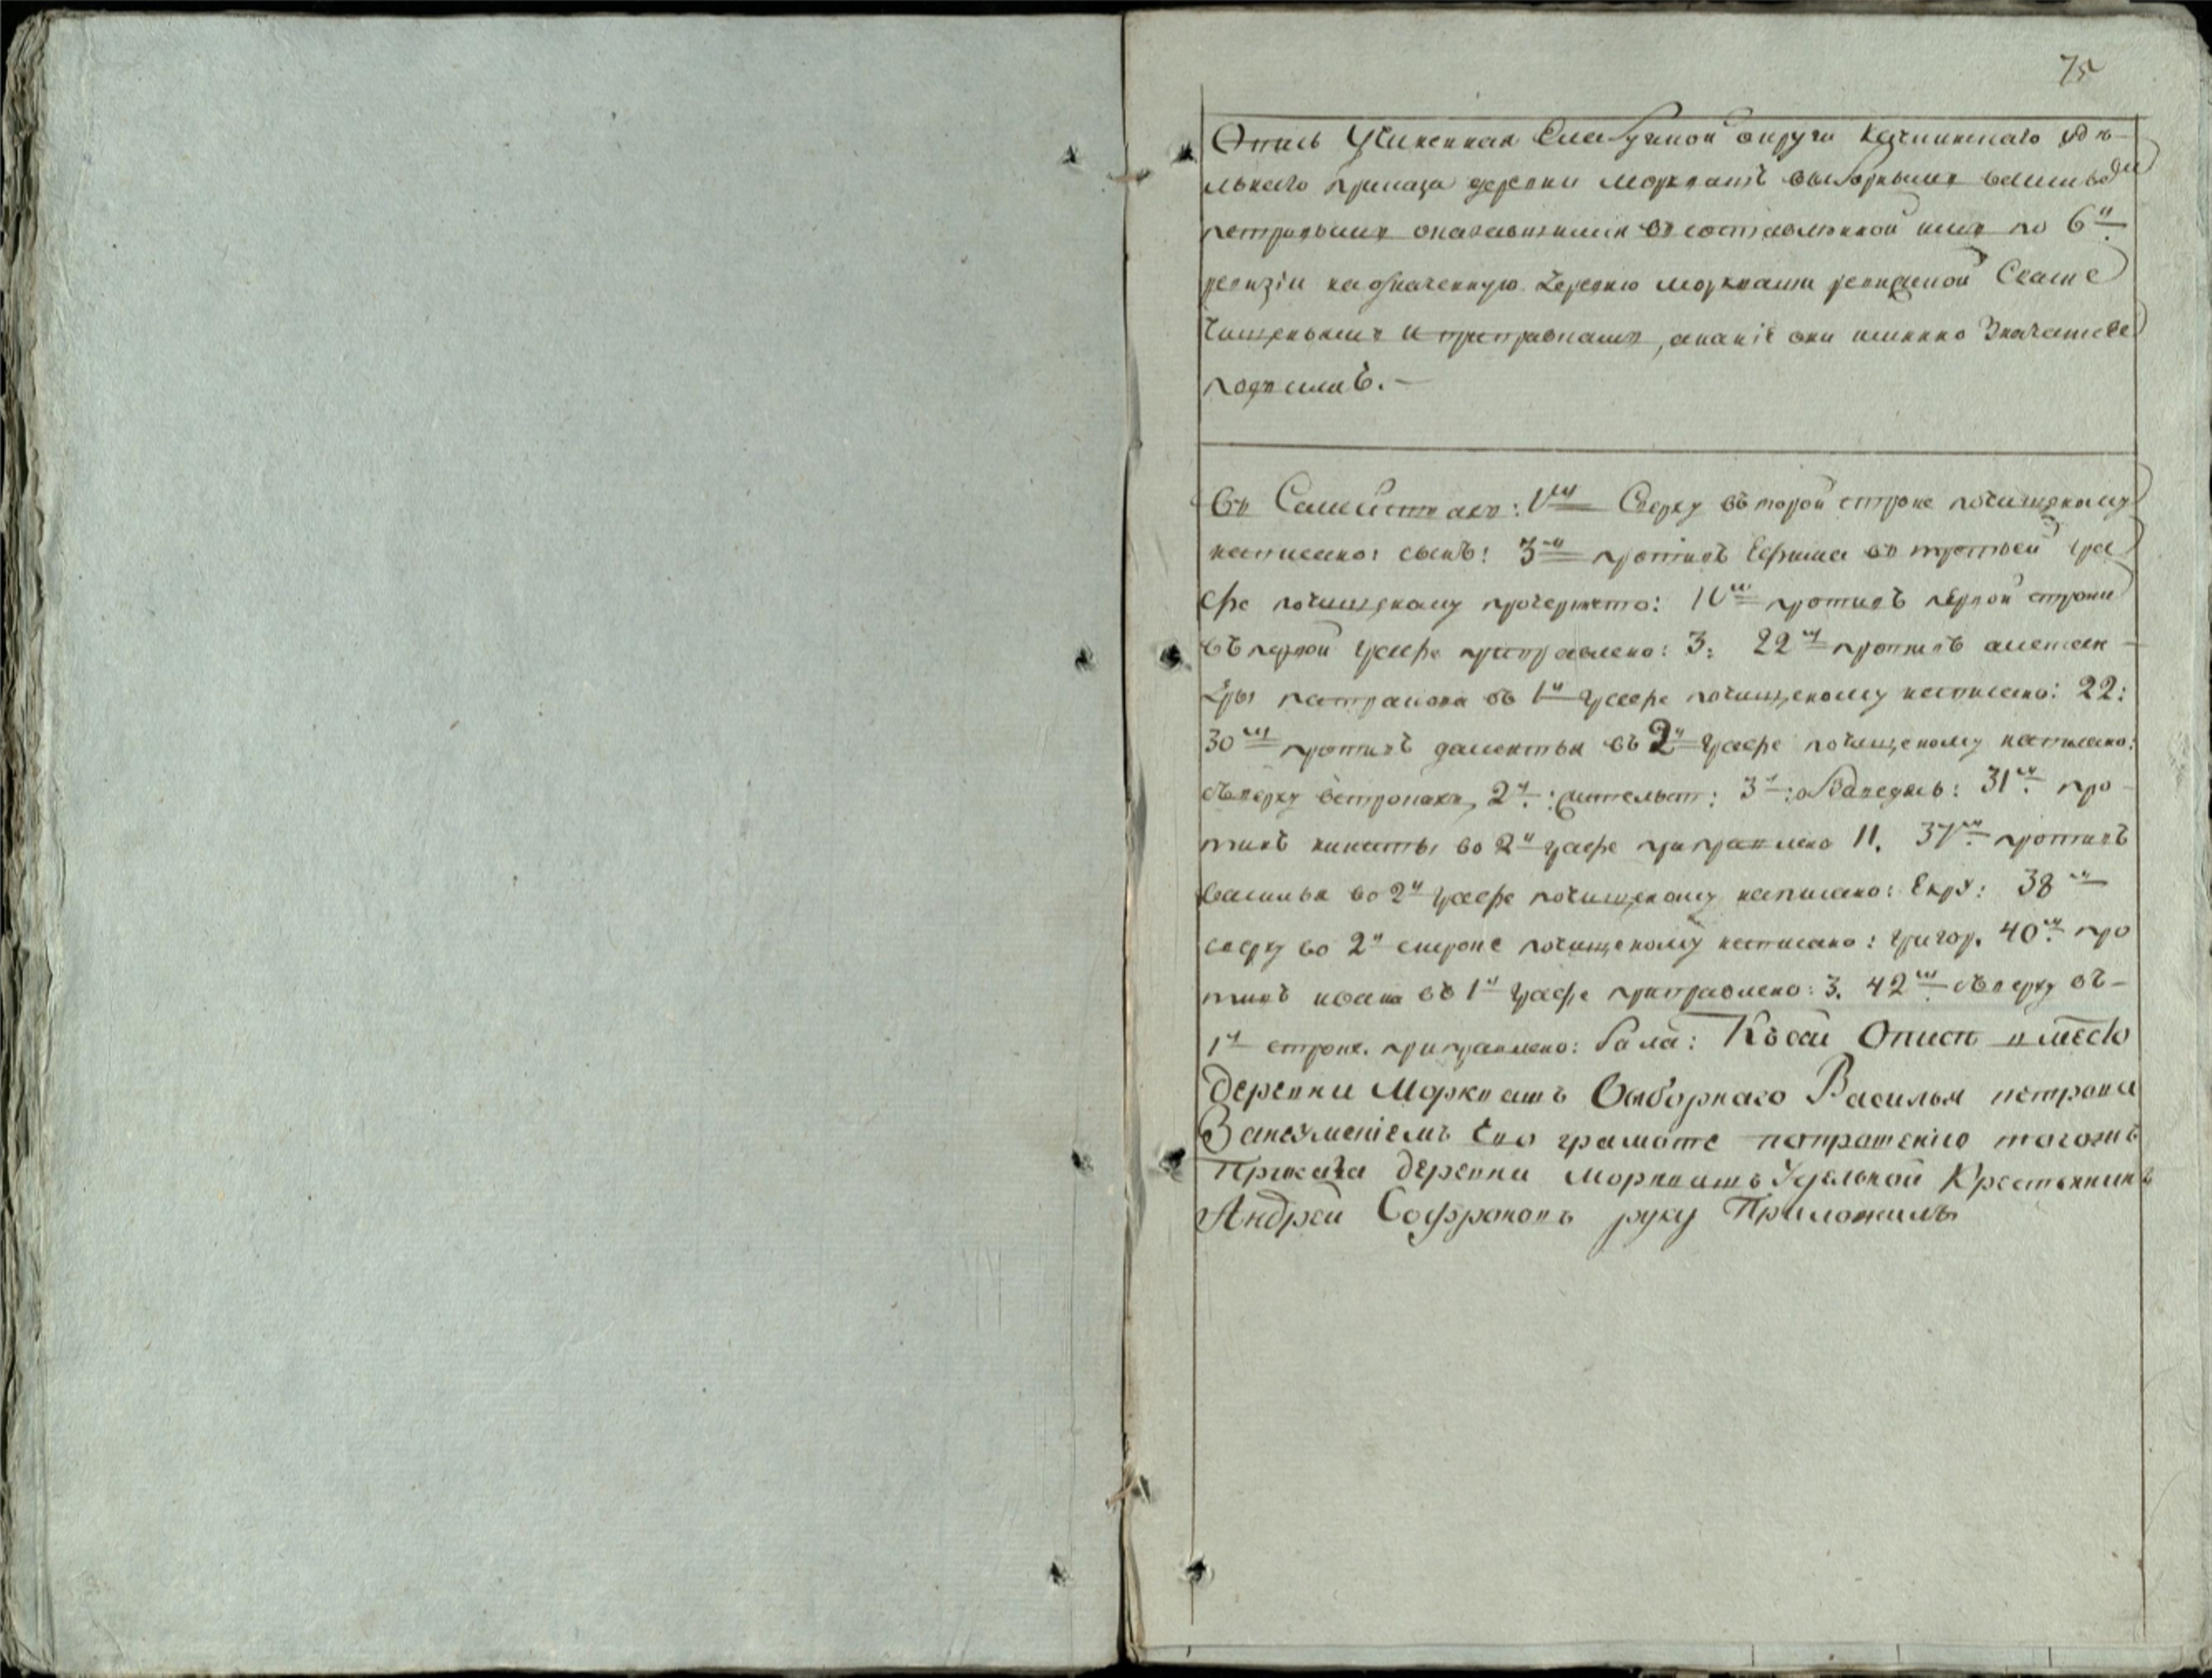 75
Опись Учиненная Елабужской округи удѣ-
льнаго приказа деревни Морквашъ выборнымъ васильемъ
петровымъ оказавшимся въ составленной имъ по 6й
ревизіи на означенную деревню моркваши ревиской Сказке
чищеньямъ и приправкамъ, а какіе они имянно Значатся
подъ симъ. —
Въ Семействахъ: 1мъ Сверху въ торой строке почищеному
написано: сынъ: 3мъ противъ Ефима въ третьей гра
фе почищеному прочеркнето: 10мъ противъ первой строки
въ первой графе приправлено: 3: 22мъ противъ алексан-
дры петровой въ 1й графе почищеному написано: 22:
30мъ противъ дементья въ 2й графе почищеному написано:
сверху встрокахъ, 2й: 3й: 31мъ про-
тивъ никиты во 2й графе приправлено 11. 37мъ противъ
василья во 2й графе почищеному написано: Екру: 38мъ
сверху во 2й строке почищеному написано: григор. 40мъ про
тивъ ивана въ 1й графе приправлено: 3. 42мъ сверху въ-
1й строке. приправлено: бала: Къ сей Описи вместо
деревни Морквашъ Выборнаго Василья петрова
Занеумениемъ Ево грамоте попрошению тогожъ
Приказа деревни моркваш Удельной Крестьянинъ
Андрей Софроновъ руку Приложилъ